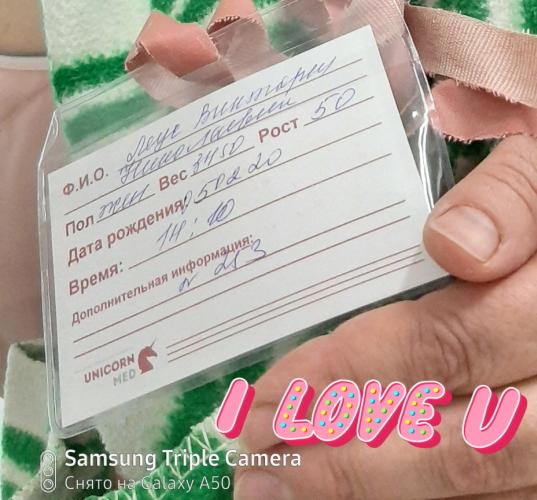 Ф.И.О. Леус Виктории
Николаевны
Пол жен Вес 3450 Рост 50
Дата рождения: 050220
Время: 14:10
Дополнительная информация:
N 253
UNICORN
MED
I LOVE U
Samsung Triple Camera
Снято на Galaxy A50